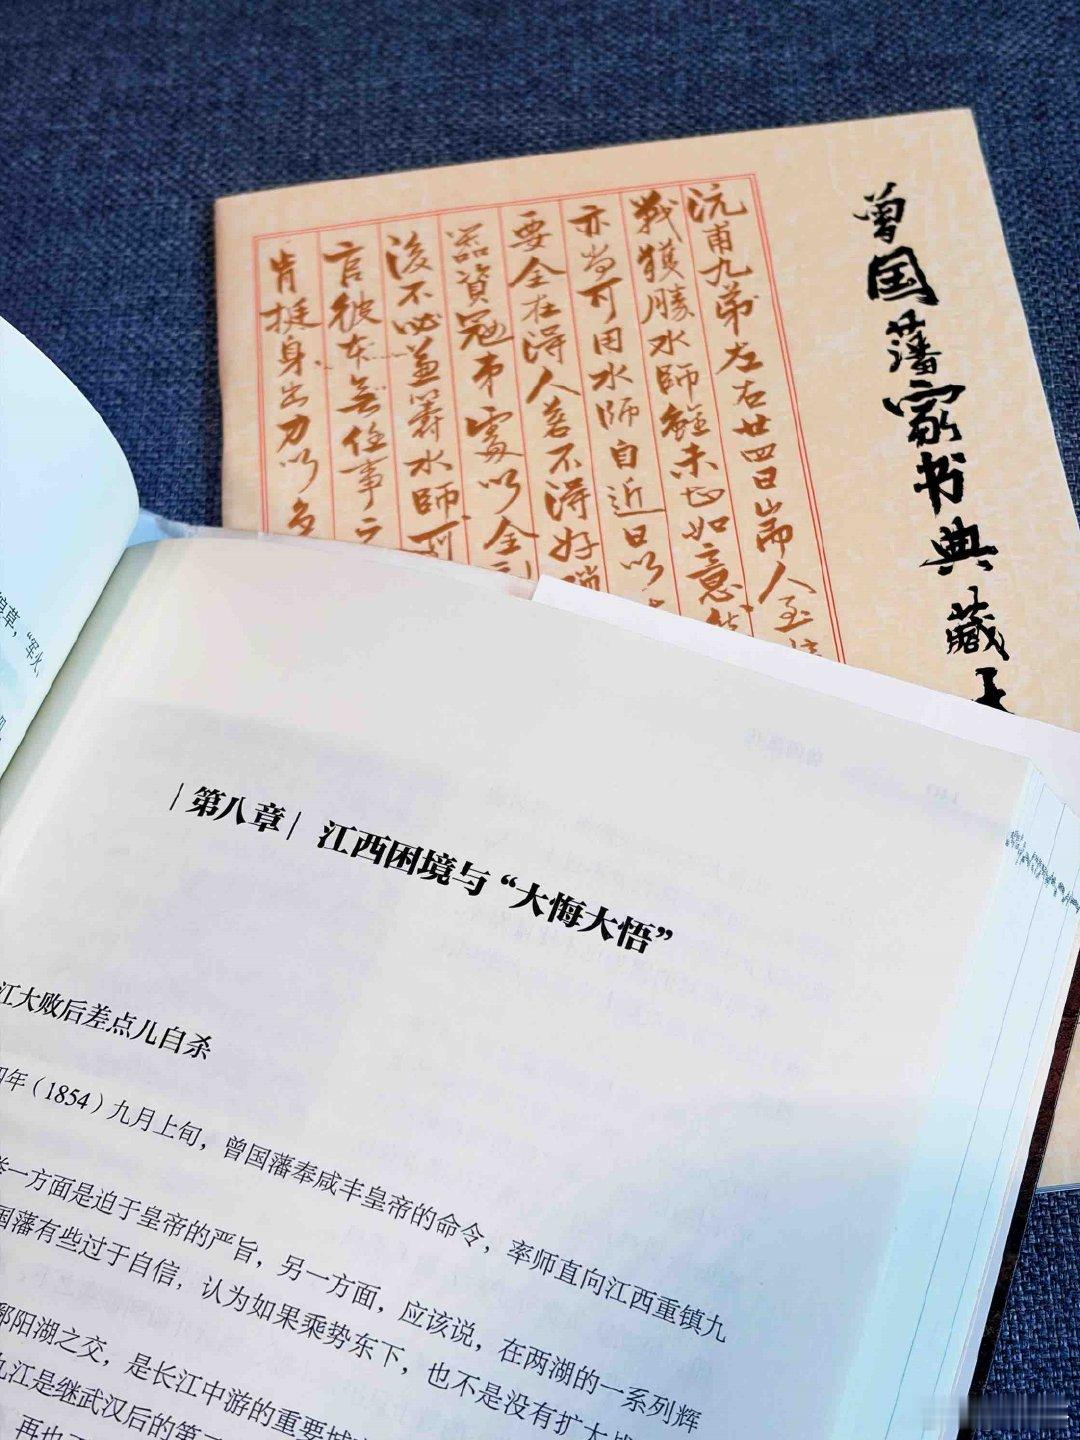 曾国藩家书典藏
沅甫九弟左右廿四日崙人至
战獲勝水師雖未如意
亦尚可用水師自近日以
要全在得人若不得好
器資寇弟處以全
後不必兼籌水師可
言彼本無任事之
肯挺身出力以多
草，“军火，
|第八章| 江西困境与“大悔大悟”
江大败后差点儿自杀
四年（1854）九月上旬，曾国藩奉咸丰皇帝的命令，率师直向江西重镇九
一方面是迫于皇帝的严旨，另一方面，应该说，在两湖的一系列辉
国藩有些过于自信，认为如果乘势东下，也不是没有扩大战
鄱阳湖之交，是长江中游的重要城
九江是继武汉后的第二
再也